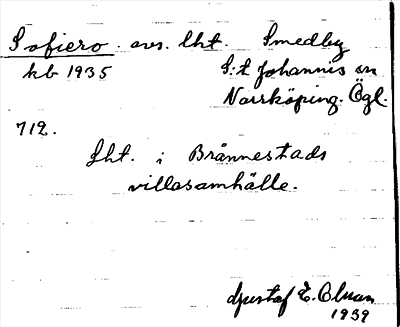 Sofiero. avs. lht. Smedby
kb 1935 S:t Johannis sn
Norrköping. Ögl.
712.
Lht. i Brånnestads
villasamhälle.
Gustaf E. Olman
1939